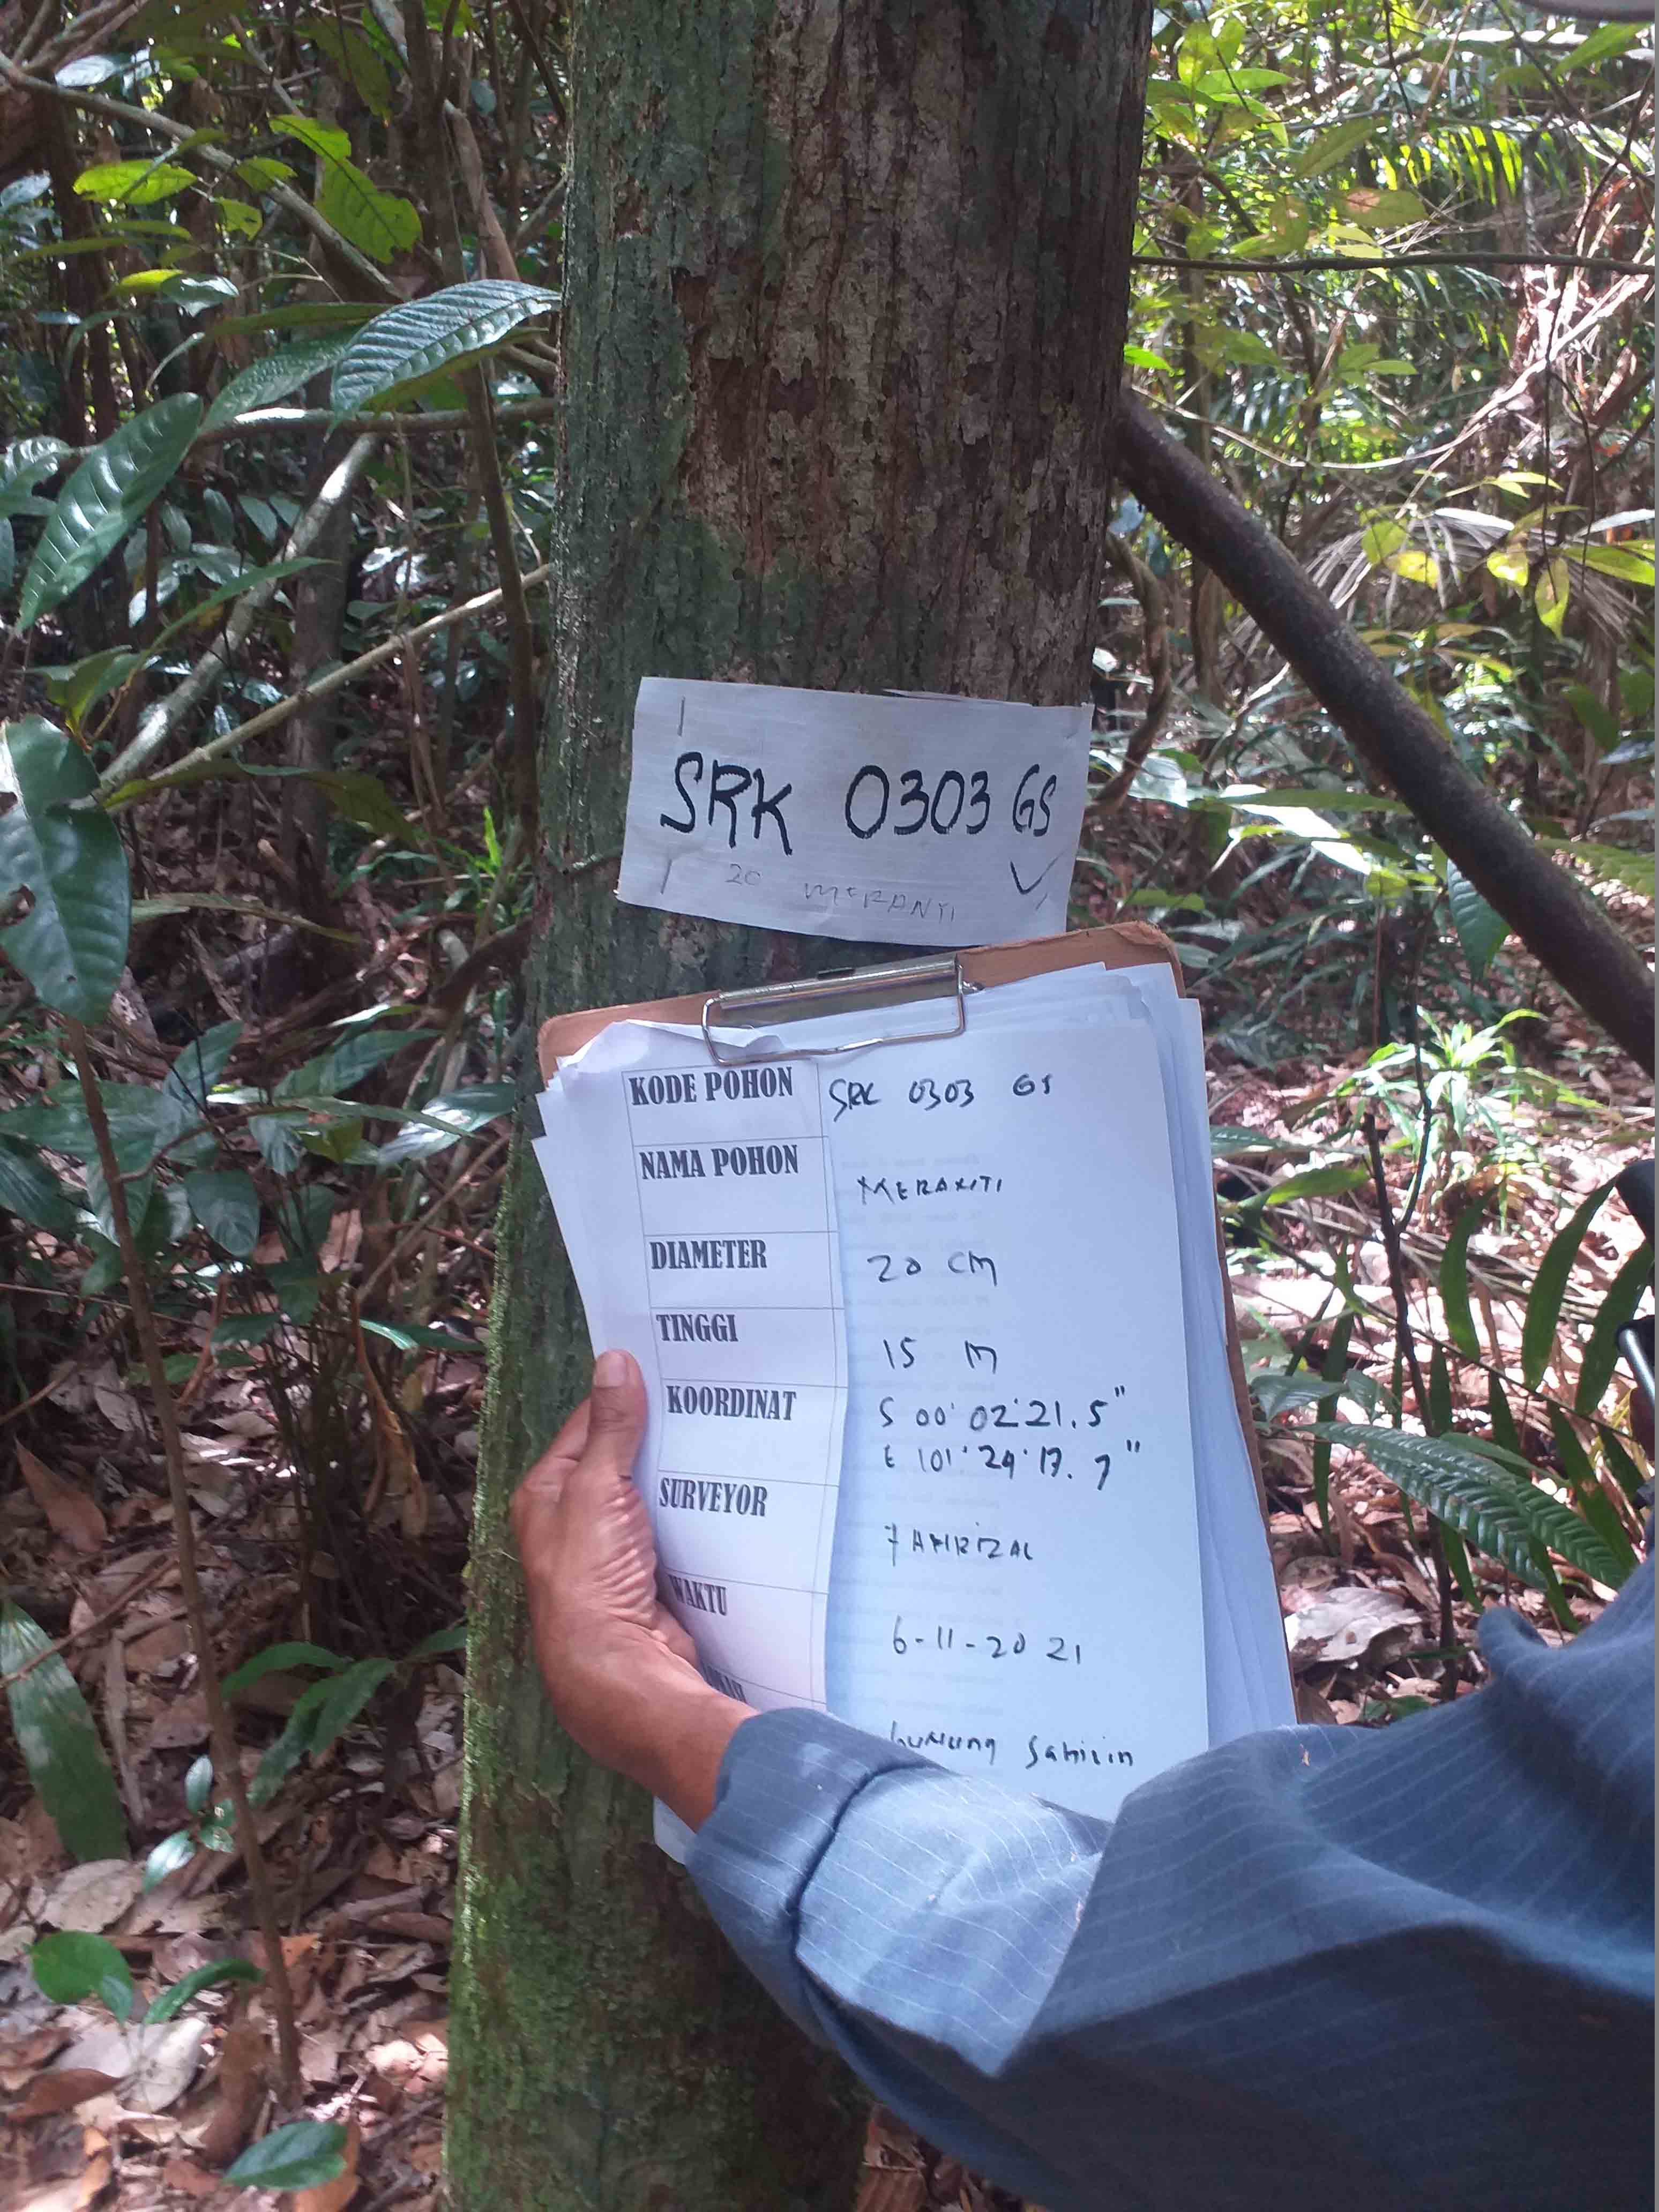 SRK 0303 GS
20 MERANTI
KODE POHON SRK 0303 GS
NAMA POHON MERANTI
DIAMETER 20 CM
TINGGI 15 M
KOORDINAT S 00° 02' 21.5"
E 101° 24' 17.7"
SURVEYOR FAHRIZAL
WAKTU 6-11-2021
Sahirin